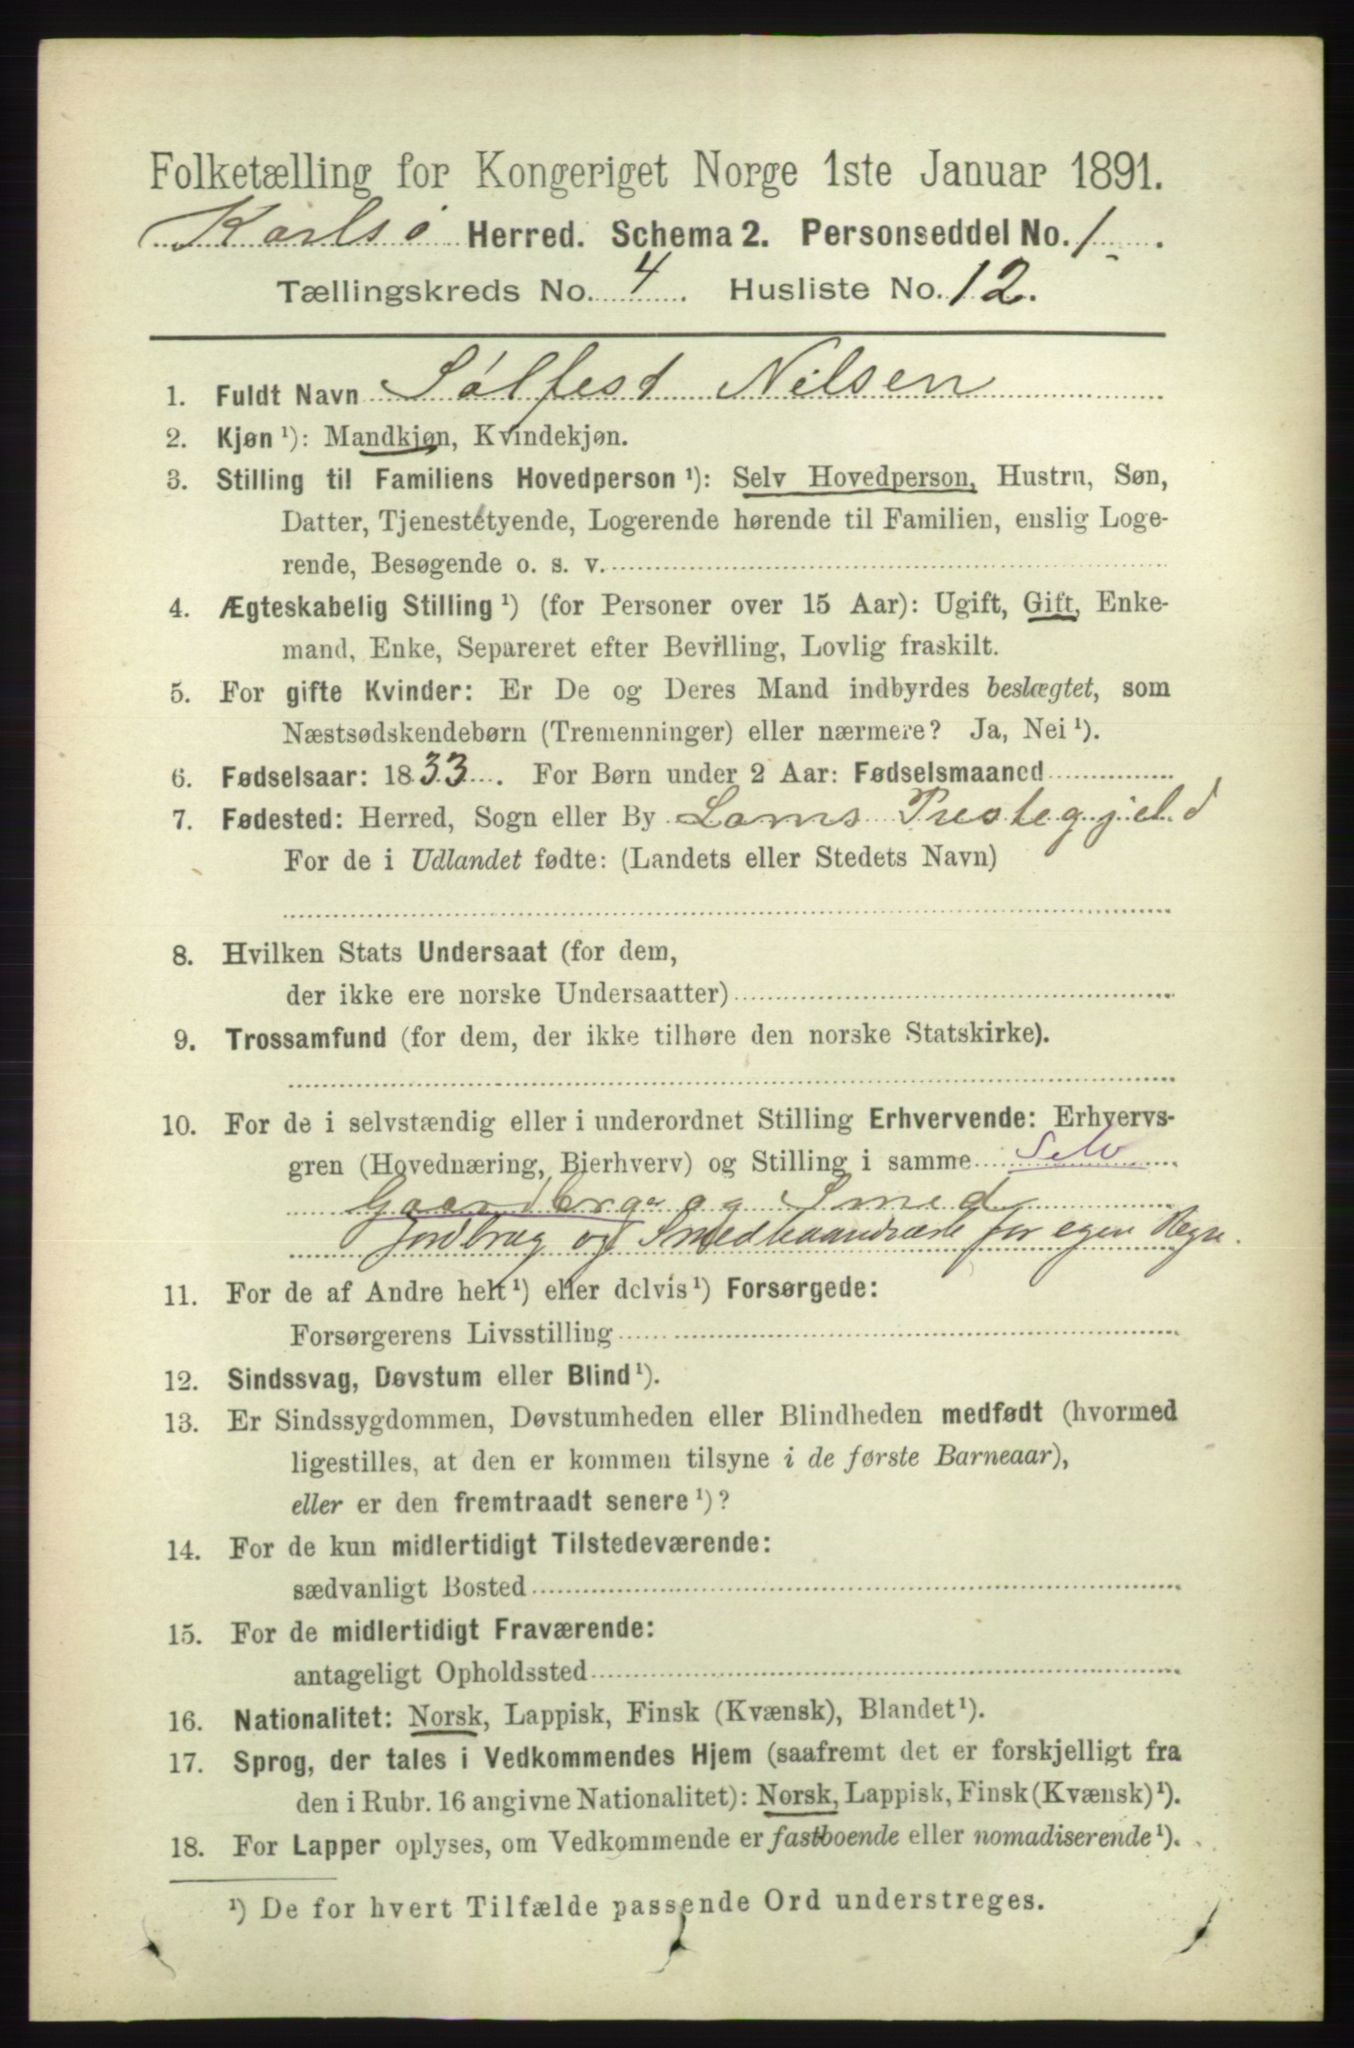 Folketælling for Kongeriget Norge 1ste Januar 1891.
Karlsø Herred. Schema 2. Personseddel No. 1.
Tællingskreds No. 4. Husliste No. 12.
1. Fuldt Navn Sølfest Nilsen
2. Kjøn ¹): Mandkjøn, Kvindekjøn.
3. Stilling til Familiens Hovedperson ¹): Selv Hovedperson, Hustru, Søn,
Datter, Tjenestetyende, Logerende hørende til Familien, enslig Loge-
rende, Besøgende o. s. v.
4. Ægteskabelig Stilling ¹) (for Personer over 15 Aar): Ugift, Gift, Enke-
mand, Enke, Separeret efter Bevilling, Lovlig fraskilt.
5. For gifte Kvinder: Er De og Deres Mand indbyrdes beslægtet, som
Næstsødskendebørn (Tremenninger) eller nærmere? Ja, Nei ¹).
6. Fødselsaar: 1833. For Børn under 2 Aar: Fødselsmaaned
7. Fødested: Herred, Sogn eller By Loms Prestegjeld
For de i Udlandet fødte: (Landets eller Stedets Navn)
8. Hvilken Stats Undersaat (for dem,
der ikke ere norske Undersaatter)
9. Trossamfund (for dem, der ikke tilhøre den norske Statskirke).
10. For de i selvstændig eller i underordnet Stilling Erhvervende: Erhvervs-
gren (Hovednæring, Bierhverv) og Stilling i samme Selv
Gaardbrger og Smed
Jordbrug og Smedhaandværk for egen Regn.
11. For de af Andre helt ¹) eller delvis ¹) Forsørgede:
Forsørgerens Livsstilling
12. Sindssvag, Døvstum eller Blind ¹).
13. Er Sindssygdommen, Døvstumheden eller Blindheden medfødt (hvormed
ligestilles, at den er kommen tilsyne i de første Barneaar),
eller er den fremtraadt senere ¹)?
14. For de kun midlertidigt Tilstedeværende:
sædvanligt Bosted
15. For de midlertidigt Fraværende:
antageligt Opholdssted
16. Nationalitet: Norsk, Lappisk, Finsk (Kvænsk), Blandet ¹).
17. Sprog, der tales i Vedkommendes Hjem (saafremt det er forskjelligt fra
den i Rubr. 16 angivne Nationalitet): Norsk, Lappisk, Finsk (Kvænsk) ¹).
18. For Lapper oplyses, om Vedkommende er fastboende eller nomadiserende ¹).
¹) De for hvert Tilfælde passende Ord understreges.